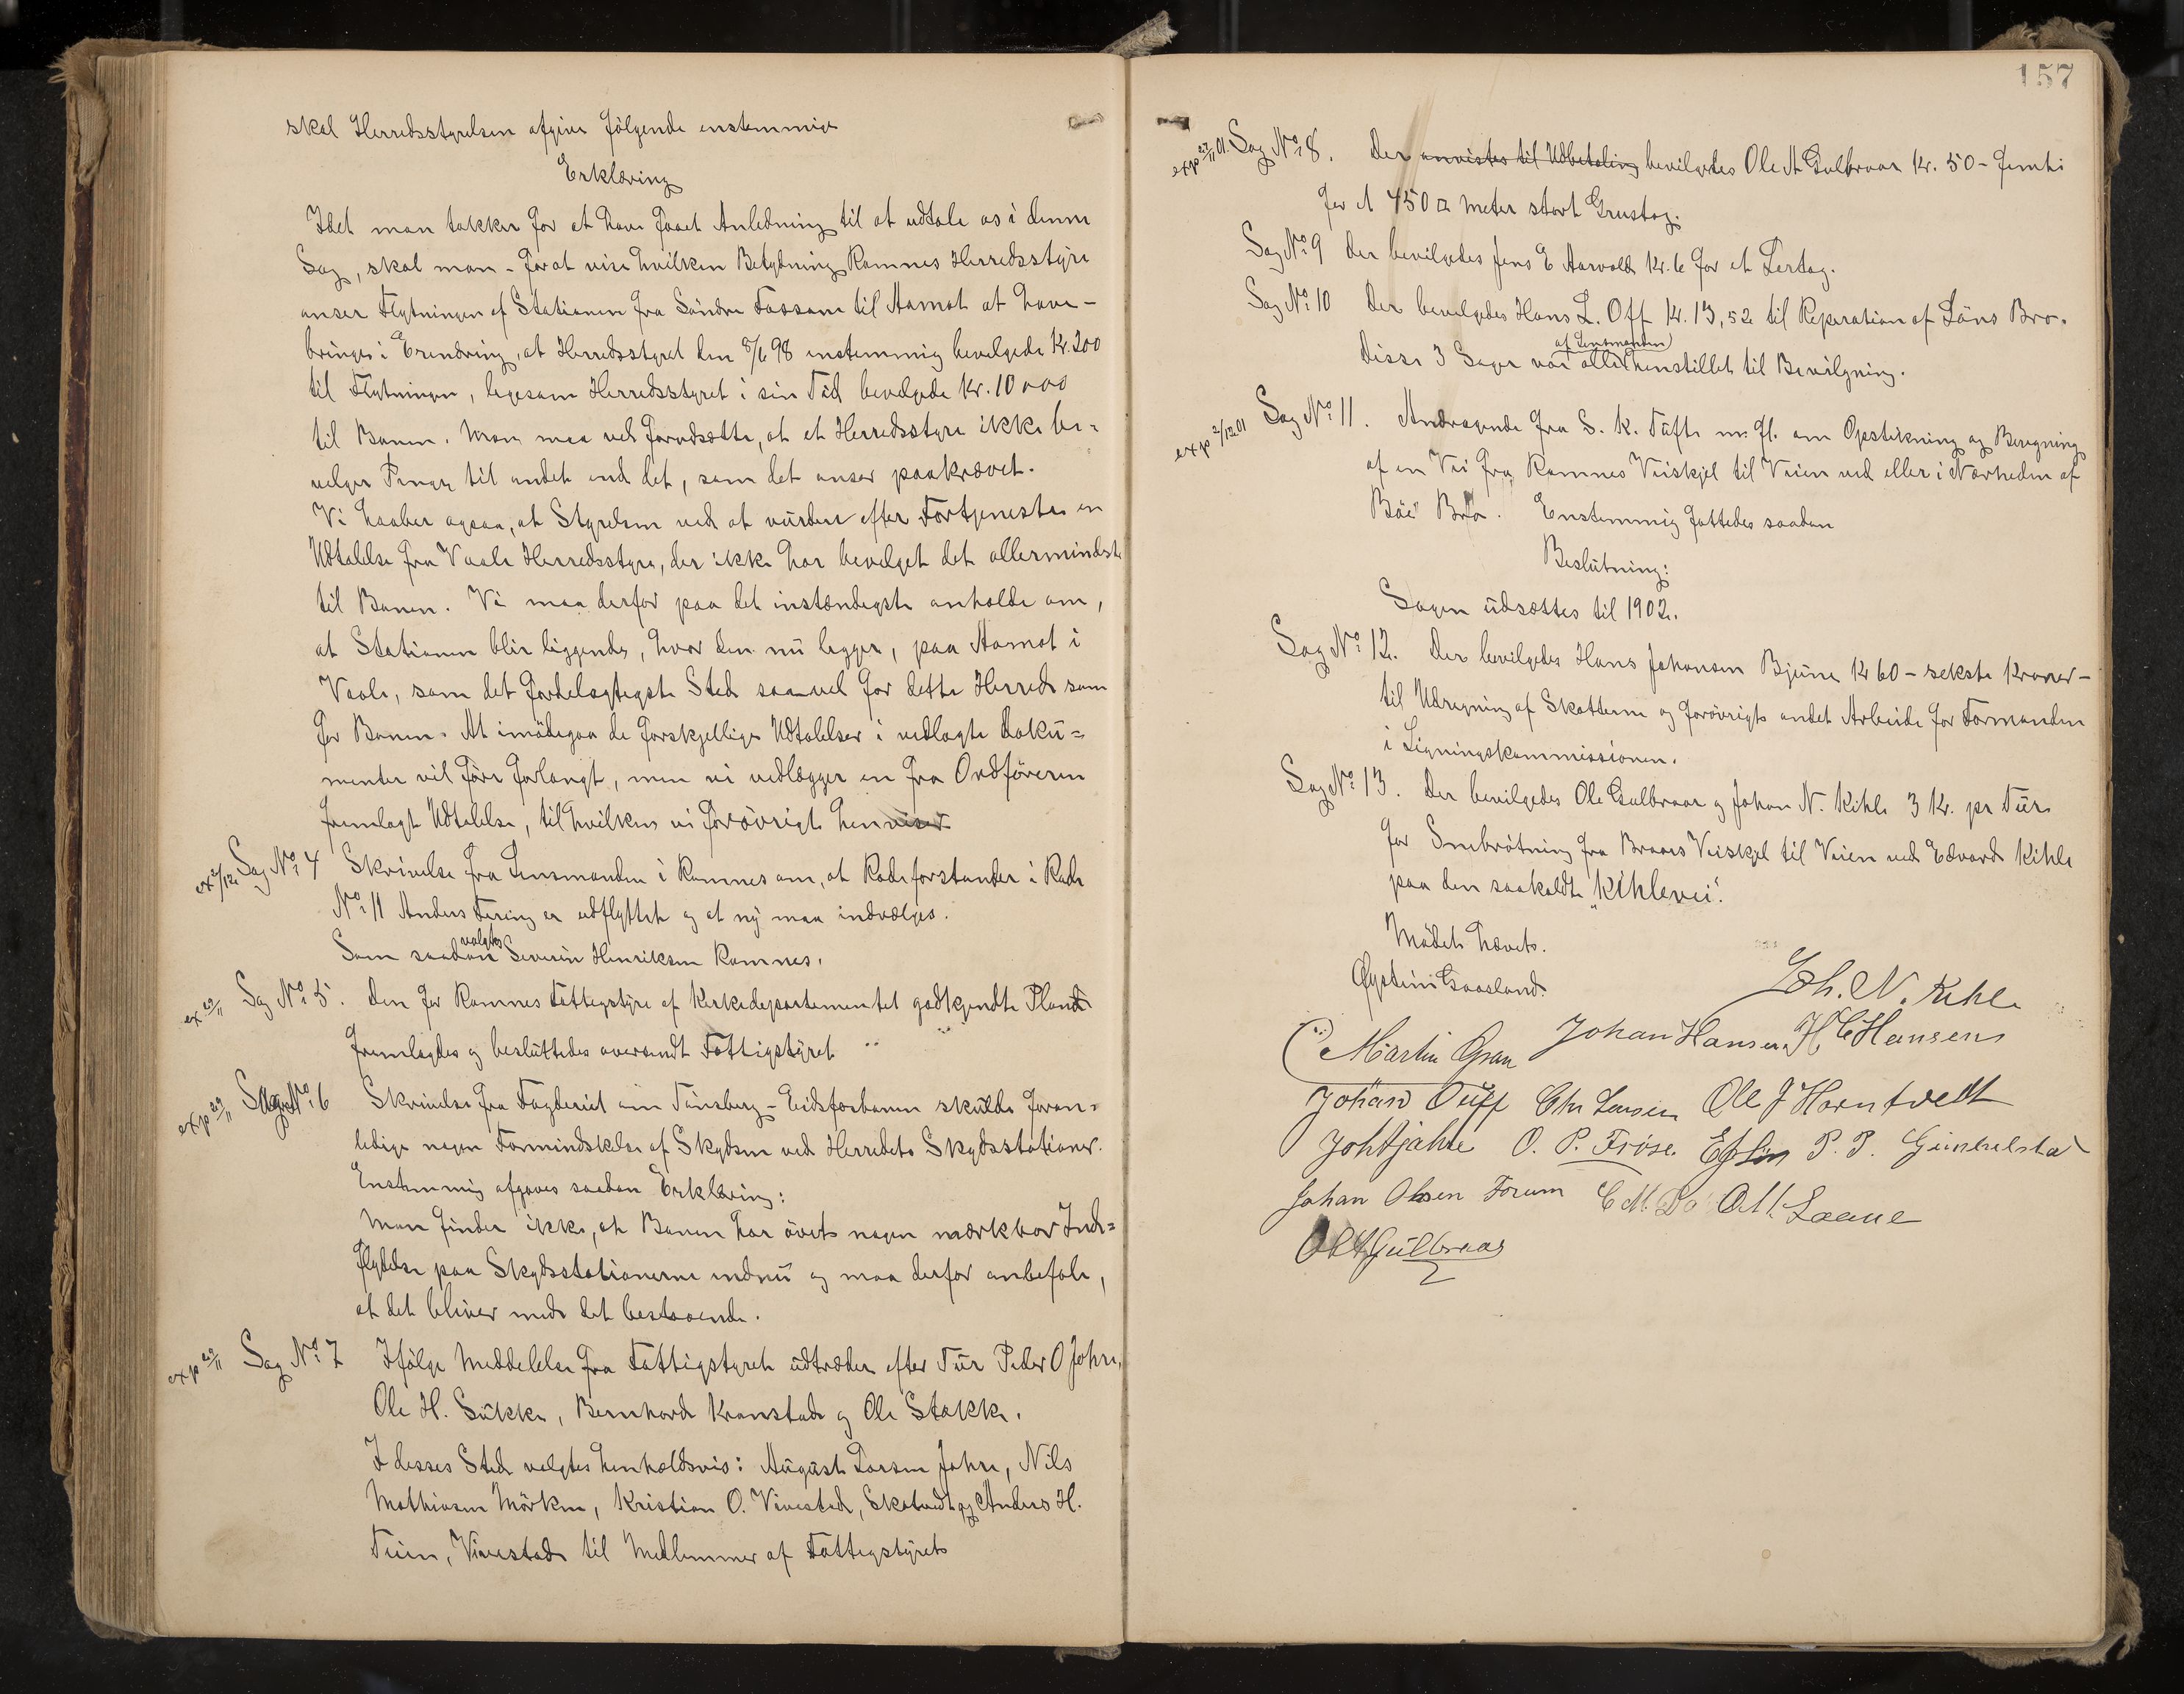 skal Herredsstyrelsen afgive følgende enstemmige
Erklæring
Idet man takker for at have faaet Anledning til at udtale os i denne
Sag, skal man - for at vise hvilken Betydning Ramnes Herredsstyre
anser Flytningen af Stationen fra Søndre Fossan til Aamot at have -
bringe i Erendring, at Herredsstyret den 8/6 98 enstemmig bevilgede Kr. 200
til Flytningen, ligesom Herredsstyret i sin Tid bevilgede Kr. 10000
til Banen. Man maa vel forudsætte, at et Herredsstyre ikke be=
vilger Penge til andet end det, som det anser paakrævet.
Vi haaber ogsaa, at Styrelsen ved at vurdere efter Fortjeneste en
Udtalelse fra Vaale Herredsstyre, der ikke har bevilget det allermindste
til Banen. Vi maa derfor paa det instændigste anholde om,
at Stationen blir liggende, hvor den nu ligger, paa Aamot i
Vaale, som det fordelagtigste Sted saavel for dette Herred som
for Banen. At imødegaa de forskjellige Udtalelser i vedlagte Doku=
menter vil føre forlangt, men vi vedlægger en fra Ordføreren
fremlagt Udtalelse, til hvilken vi forøvrigt henviser
ex 2/12 Sag No 4 Skrivelse fra Lensmanden i Ramnes om, at Rodeforstander i Rode
No 11 Anders Fering er udflyttet og at ny maa indvælges.
valgtes
Som saadan Severin Henriksen Ramnes.
ex 29/11 Sag No 5. Den for Ramnes Fattigstyre af Kirkedepartementet godkjendte Plan
fremlagdes og besluttedes oversendt Fattigstyret
exp 29/11 Sag No 6 Skrivelse fra Fogderiet om Tønsberg - Eidsfosbanen skulde foran=
ledige nogen Formindskelse af Skydsen ved Herredets Skydsstationer.
Enstemmig afgaves saadan Erklæring:
Man finder ikke, at Banen har øvet nogen mærkbar Ind=
flydelse paa Skydsstationerne endnu og maa derfor anbefale,
at det bliver med det bestaaende.
exp 29/11 Sag No 7 Ifølge Meddelelse fra Fattigstyret udtræder efter Tur Peder O Jahre,
Ole H. Sukke, Bernhard Kronstad og Ole Stakke.
I disses Sted valgtes henholdsvis: August Larsen Jahre, Nils
Mathiasen Mørken, Kristian O. Vivestad, Skatvedt og Anders H.
Teien, Vivestad til Medlemmer af Fattigstyret
157
exp 29/11 01. Sag No 8. Der anvistes til Udbetaling bevilgedes Ole A Gulbraar Kr. 50 - femti
for et 450 □ Meter stort Grustag.
Sag No 9 Der bevilgedes Jens E Aarvold Kr. 6 for et Lertag.
Sag No 10 Der bevilgedes Hans L. Off Kr. 13,52 til Reperation af Løns Bro.
af Lensmanden
Disse 3 Sager var alle henstillet til Bevilgning.
exp 2/12 01 Sag No 11. Andragende fra S. K. Tufte m. fl. om Opstikning og Beregning
af en Vei fra Ramnes Veiskjel til Veien ved eller i Nærheden af
Bøe Bro. Enstemmig fattedes saadan
Beslutning:
Sagen udsættes til 1902.
Sag No 12. Der bevilgedes Hans Johansen Bjune Kr 60 - seksti Kroner -
til Udregning af Skatterne og forøvrigt andet Arbeide for Formanden
i Ligningskommissionen.
Sag No 13. Der bevilgedes Ole Gulbraar og Johan N. Kihle 3 Kr. pr Tur
for Snebrøtning fra Braars Veiskjel til Veien ved Edvard Kihle
paa den saakaldte "Kihlevei".
Mødet hævet.
Øystein Gaasland. Joh. N. Kihle
Martin Gran Johan Hansen H C Hansen
Johan Ouff Chr Larsen Ole J Horntvedt
Joh Jahre O. P. Frøse P. P. Gunkelsta
Johan Olsen Forum C M. Bø O M. Laane
Ole A Gulbraar